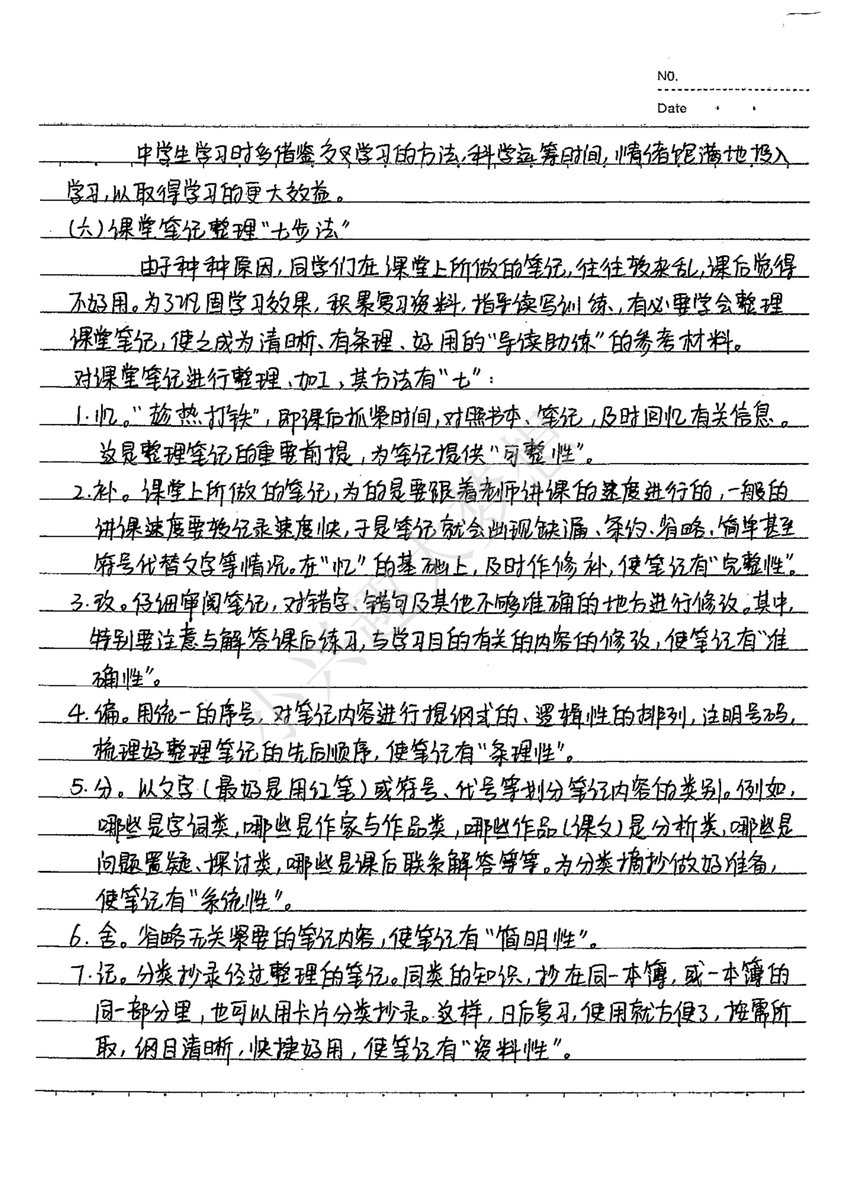 NO.
Date
中学生学习时多借鉴交叉学习的方法,科学运筹时间,情绪饱满地投入
学习,以取得学习的更大效益。
(六)课堂笔记整理“七步法”
由于种种原因,同学们在课堂上所做的笔记,往往较杂乱,课后觉得
不好用。为了巩固学习效果,积累复习资料,指导读写训练,有必要学会整理
课堂笔记,使之成为清晰、有条理、好用的“导读助练”的参考材料。
对课堂笔记进行整理、加工,其方法有“七”:
1.忆。“趁热打铁”,即课后抓紧时间,对照书本、笔记,及时回忆有关信息。
这是整理笔记的重要前提,为笔记提供“可整性”。
2.补。课堂上所做的笔记,为的是要跟着老师讲课的速度进行的,一般的
讲课速度要较记录速度快,于是笔记就会出现缺漏、条约、省略、简单甚至
符号代替文字等情况。在“忆”的基础上,及时作修补,使笔记有“完整性”。
3.改。仔细审阅笔记,对错字、错句及其他不够准确的地方进行修改。其中,
特别要注意与解答课后练习,与学习目的有关的内容的修改,使笔记有“准
确性”。
4.偏。用统一的序号,对笔记内容进行提纲式的、逻辑性的排列,注明号码,
梳理好整理笔记的先后顺序,使笔记有“条理性”。
5.分。以文字(最好是用红笔)或符号、代号等划分笔记内容的类别。例如,
哪些是字词类,哪些是作家与作品类,哪些作品(课文)是分析类,哪些是
问题置疑、探讨类,哪些是课后联条解答等等。为分类摘抄做好准备,
使笔记有“系统性”。
6.舍。省略无关紧要的笔记内容,使笔记有“简明性”。
7.记。分类抄录经过整理的笔记。同类的知识,抄在同一本簿,或一本簿的
同一部分里,也可以用卡片分类抄录。这样,日后复习,使用就方便了,按需所
取,纲目清晰,快捷好用,使笔记有“资料性”。